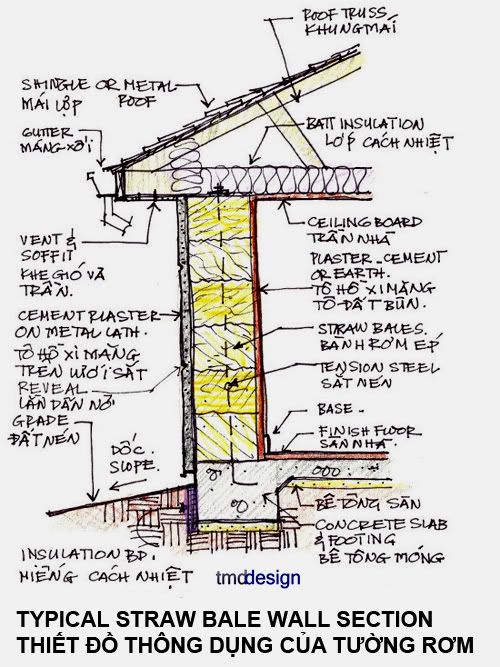 ROOF TRUSS
KHUNG MÁI
SHINGLE OR METAL
ROOF
MÁI LỢP
GUTTER
MÁNG XỐI
BATT INSULATION
LỚP CÁCH NHIỆT
VENT &
SOFFIT
KHE GIÓ VÀ
TRẦN.
CEILING BOARD
TRẦN NHÀ
PLASTER - CEMENT
OR EARTH.
TÔ HỒ XI MĂNG
TÔ ĐẤT BÙN.
CEMENT PLASTER
ON METAL LATH.
TÔ HỒ XI MĂNG
TRÊN LƯỚI SẮT
STRAW BALES.
BÁNH RƠM ÉP
TENSION STEEL
SẮT NÉN
REVEAL
LẰN DÃN NỞ
GRADE
ĐẤT NỀN
DỐC.
SLOPE.
BASE -
FINISH FLOOR
SÀN NHÀ.
BÊ TÔNG SÀN
CONCRETE SLAB
& FOOTING
BÊ TÔNG MÓNG
INSULATION BD.
MIẾNG CÁCH NHIỆT
tmddesign
TYPICAL STRAW BALE WALL SECTION
THIẾT ĐỒ THÔNG DỤNG CỦA TƯỜNG RƠM